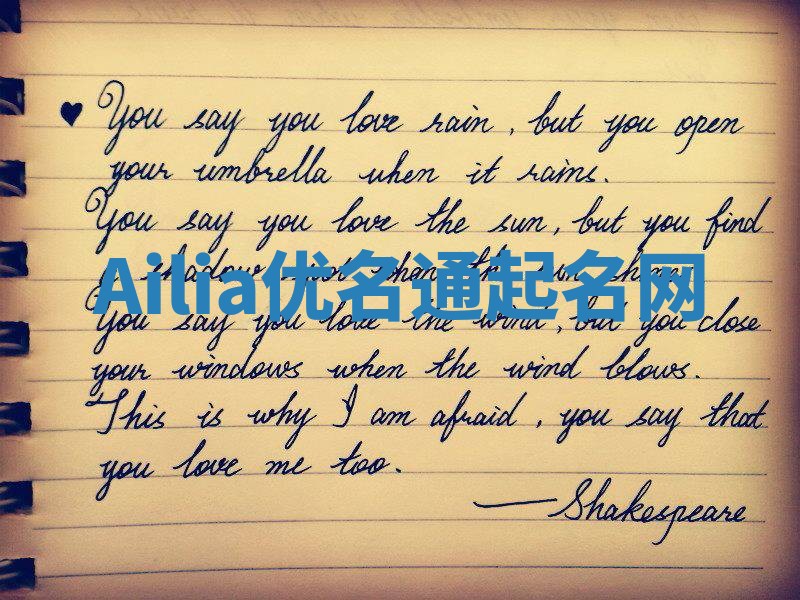 ♥ You say you love rain, but you open
your umbrella when it rains.
You say you love the sun, but you find
a shadow spot when the sun shines.
Ailia优名通起名网
You say you love the wind, but you close
your windows when the wind blows.
This is why I am afraid, you say that
you love me too.
—Shakespeare